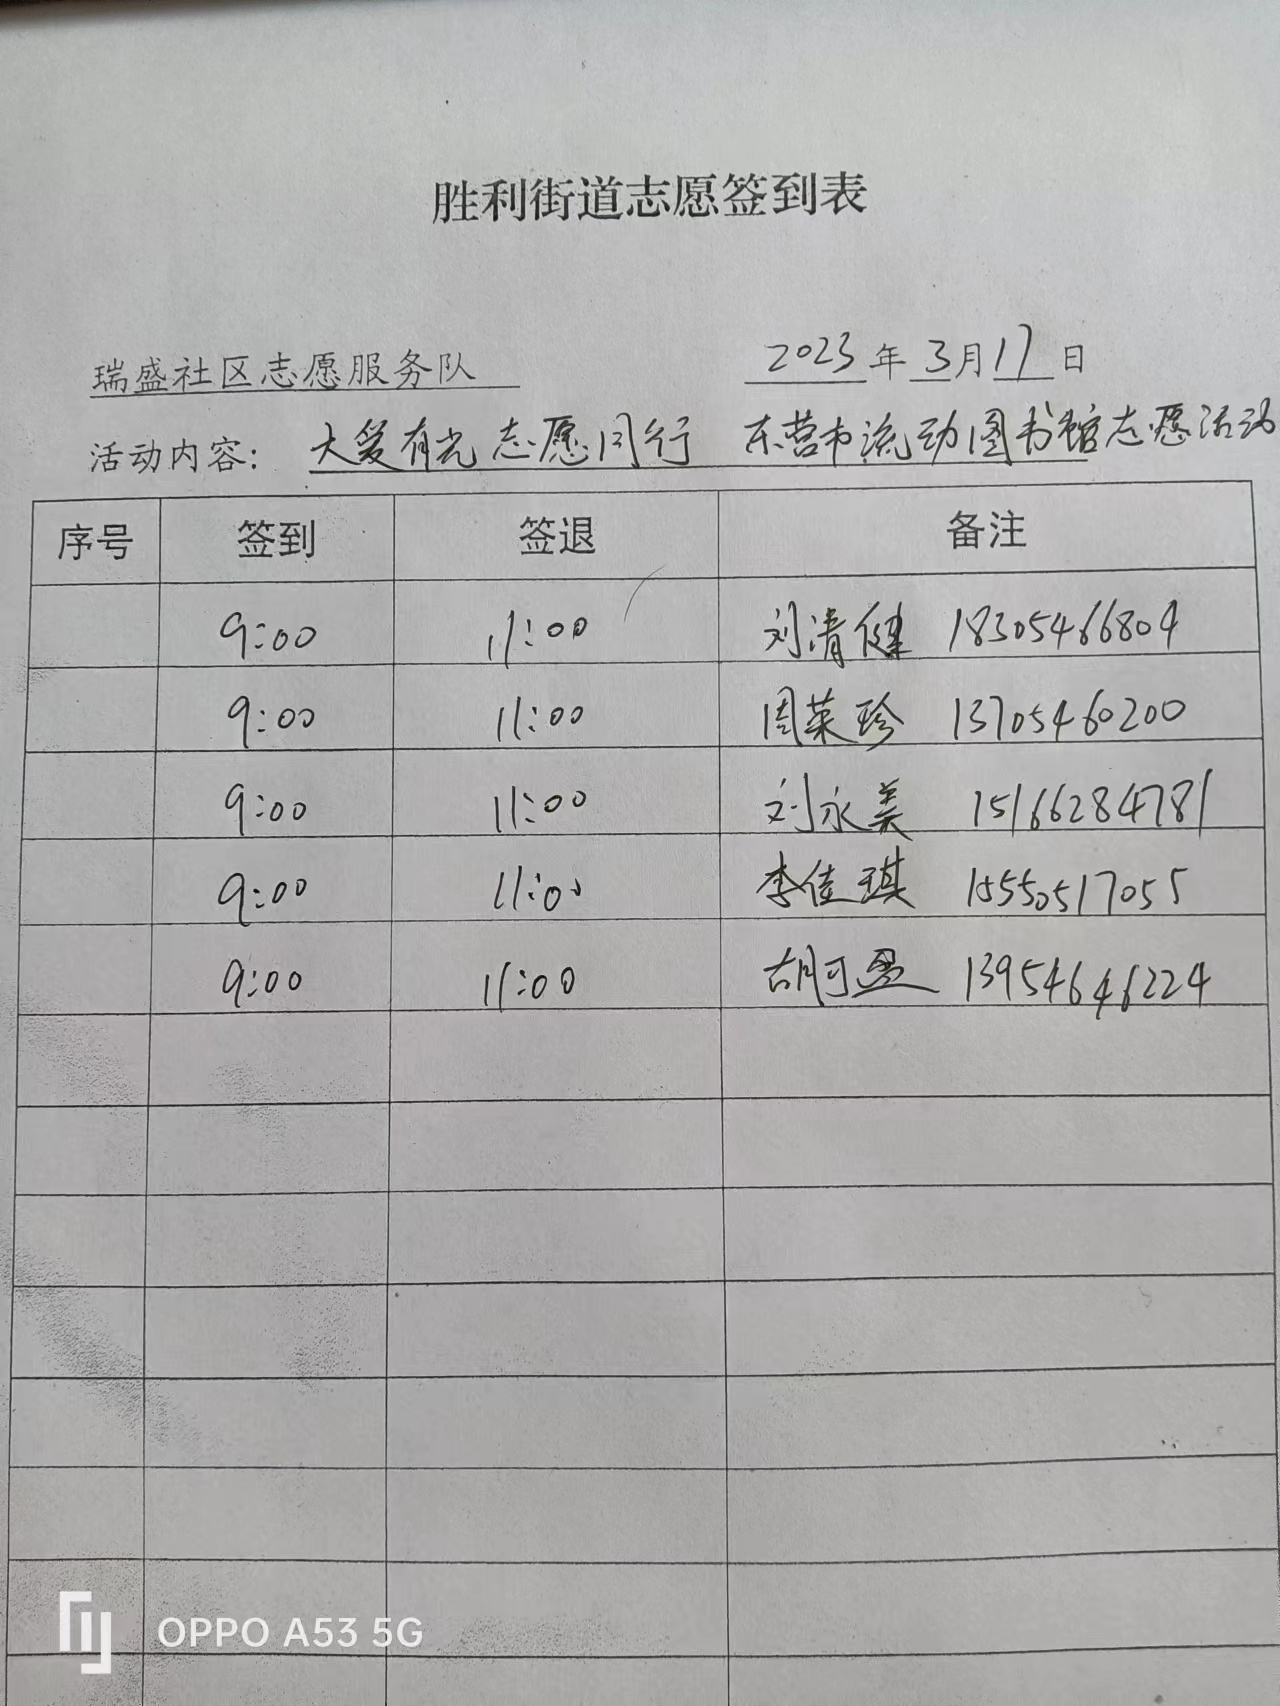 胜利街道志愿签到表
瑞盛社区志愿服务队 2023年3月17日
活动内容: 大爱有光 志愿同行 东营市流动图书馆志愿活动
序号 签到 签退 备注
9:00 11:00 刘清健 18305466804
9:00 11:00 周荣珍 13705460200
9:00 11:00 刘永美 15166284781
9:00 11:00 李佳琪 15550517055
9:00 11:00 胡可盈 13954646224
OPPO A53 5G